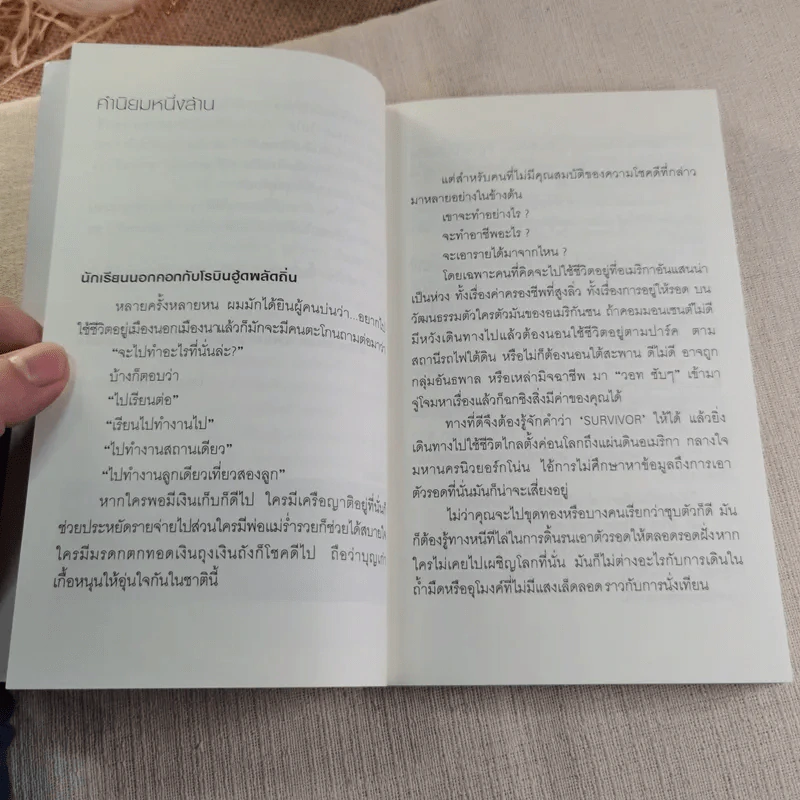 คำนิยมหนึ่งล้าน
นักเรียนนอกคอกกับโรบินฮู้ดพลัดถิ่น
หลายครั้งหลายหน ผมมักได้ยินผู้คนบ่นว่า...อยากไป
ใช้ชีวิตอยู่เมืองนอกเมืองนาแล้วก็มักจะมีคนตะโกนถามต่อมาว่า
“จะไปทำอะไรที่นั่นล่ะ?”
บ้างก็ตอบว่า
“ไปเรียนต่อ”
“เรียนไปทำงานไป”
“ไปทำงานสถานเดียว”
“ไปทำงานลูกเดียวเที่ยวสองลูก”
หากใครพอมีเงินเก็บก็ดีไป ใครมีเครือญาติอยู่ที่นั่น
ช่วยประหยัดรายจ่ายไปส่วนใครมีพ่อแม่ร่ำรวยก็ช่วยได้สบาย
ใครมีมรดกตกทอดเงินถุงเงินถังก็โชคดีไป ถือว่าบุญเก่า
เกื้อหนุนให้อุ่นใจกันในชาตินี้
แต่สำหรับคนที่ไม่มีคุณสมบัติของความโชคดีที่กล่าว
มาหลายอย่างในข้างต้น
เขาจะทำอย่างไร ?
จะทำอาชีพอะไร ?
จะเอารายได้มาจากไหน ?
โดยเฉพาะคนที่คิดจะไปใช้ชีวิตอยู่ที่อเมริกาอันแสนน่า
เป็นห่วง ทั้งเรื่องค่าครองชีพที่สูงลิ่ว ทั้งเรื่องการอยู่ให้รอด บน
วัฒนธรรมตัวใครตัวมันของอเมริกันชน ถ้าคอมมอนเซนต์ไม่ดี
มีหวังเดินทางไปแล้วต้องนอนใช้ชีวิตอยู่ตามปาร์ค ตาม
สถานีรถไฟใต้ดิน หรือไม่ก็ต้องนอนใต้สะพาน ดีไม่ดี อาจถูก
กลุ่มอันธพาล หรือเหล่ามิจฉาชีพ มา “วอท ซับๆ” เข้ามา
จู่โจมหาเรื่องแล้วก็ฉกชิงสิ่งมีค่าของคุณได้
ทางที่ดีจึงต้องรู้จักคำว่า ‘SURVIVOR’ ให้ได้ แล้วยิ่ง
เดินทางไปใช้ชีวิตไกลตั้งค่อนโลกถึงแผ่นดินอเมริกา กลางใจ
มหานครนิวยอร์กโน่น ไอ้การไม่ศึกษาหาข้อมูลถึงการเอา
ตัวรอดที่นั่นมันก็น่าจะเสี่ยงอยู่
ไม่ว่าคุณจะไปขุดทองหรือบางคนเรียกว่าชุบตัวก็ดี มัน
ก็ต้องรู้ทางหนีทีไล่ในการดิ้นรนเอาตัวรอดให้ตลอดรอดฝั่งหาก
ใครไม่เคยไปเผชิญโลกที่นั่น มันก็ไม่ต่างอะไรกับการเดินใน
ถ้ำมืดหรืออุโมงค์ที่ไม่มีแสงเล็ดลอด ราวกับการนั่งเทียน